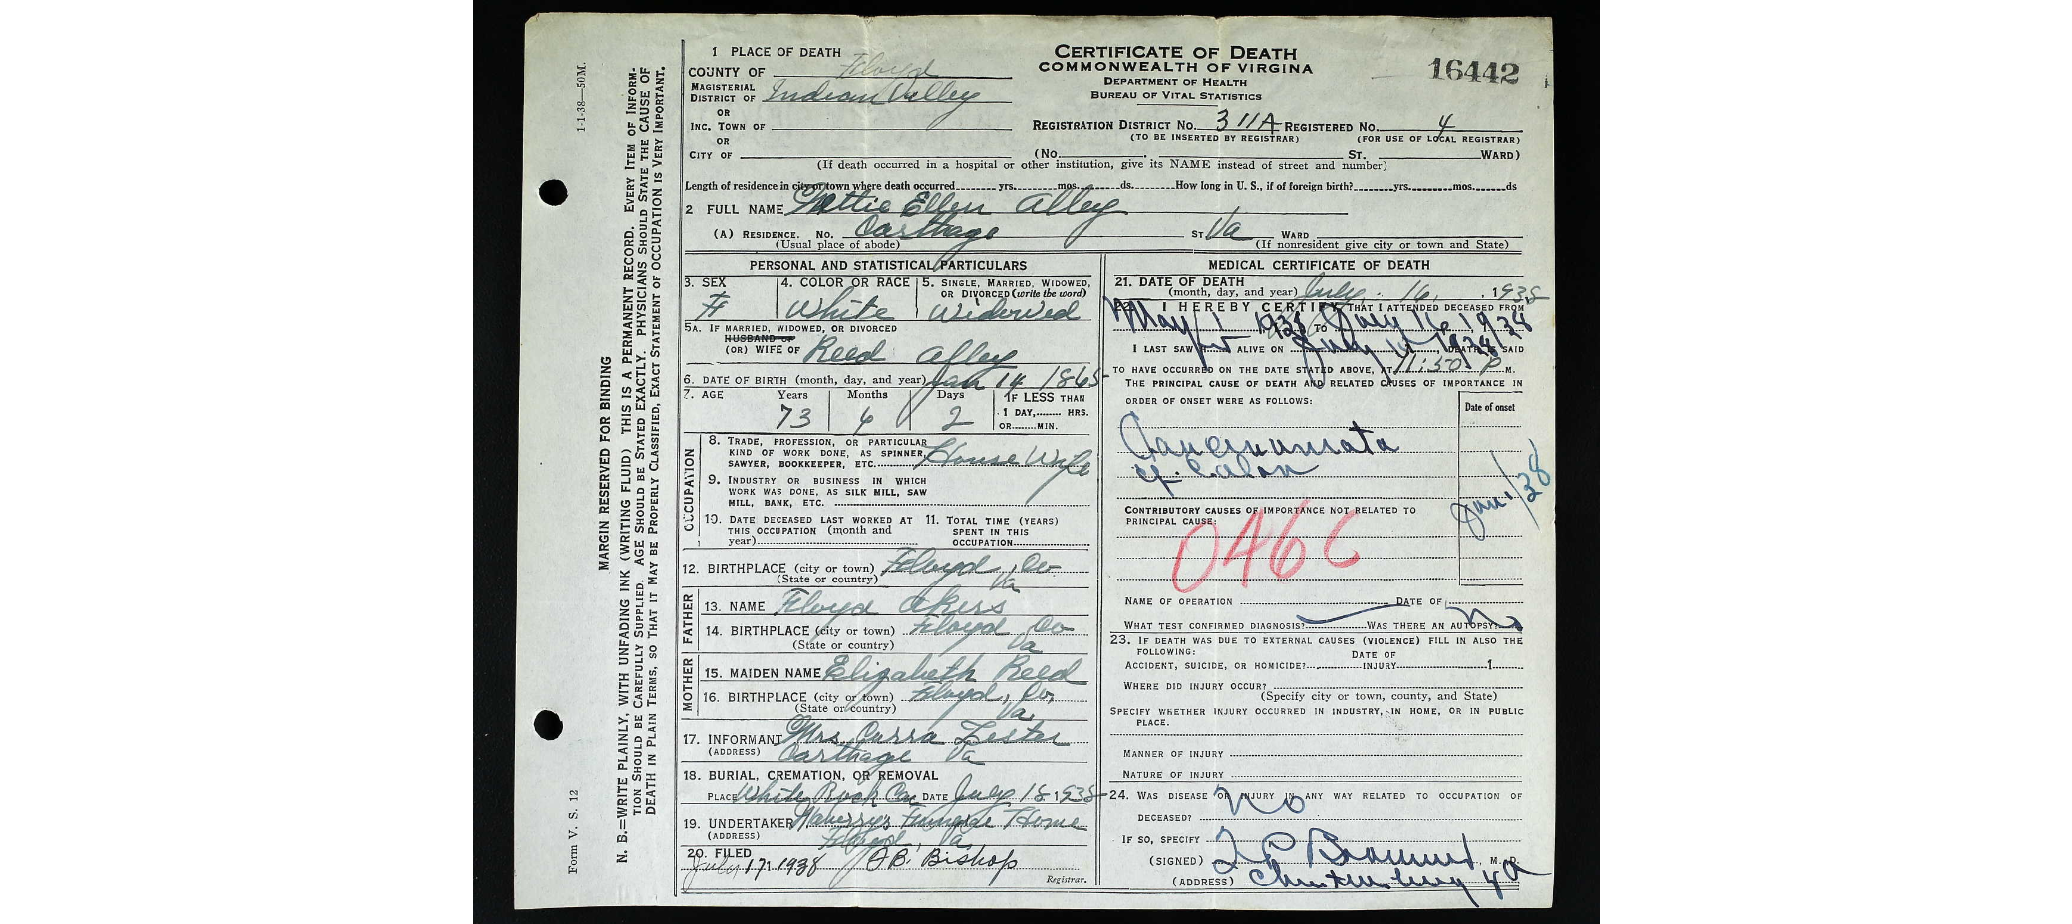 1-1-38—50M.
MARGIN RESERVED FOR BINDING
N. B.=WRITE PLAINLY, WITH UNFADING INK (WRITING FLUID) THIS IS A PERMANENT RECORD. EVERY ITEM OF INFORM-
TION SHOULD BE CAREFULLY SUPPLIED. AGE SHOULD BE STATED EXACTLY. PHYSICIANS SHOULD STATE THE CAUSE OF
DEATH IN PLAIN TERMS, SO THAT IT MAY BE PROPERLY CLASSIFIED, EXACT STATEMENT OF OCCUPATION IS VERY IMPORTANT.
Form V. S. 12
1 PLACE OF DEATH
COUNTY OF Floyd
MAGISTERIAL
DISTRICT OF Indian Valley
OR
INC. TOWN OF
OR
CITY OF
CERTIFICATE OF DEATH
COMMONWEALTH OF VIRGINA
DEPARTMENT OF HEALTH
BUREAU OF VITAL STATISTICS
16442
REGISTRATION DISTRICT No. 311A REGISTERED No. 4
(TO BE INSERTED BY REGISTRAR) (FOR USE OF LOCAL REGISTRAR)
(No. ST. WARD)
(If death occurred in a hospital or other institution, give its NAME instead of street and number)
Length of residence in city or town where death occurred yrs. mos. ds. How long in U. S., if of foreign birth? yrs. mos. ds
2 FULL NAME Mattie Ellen Alley
(A) RESIDENCE. No. Carthage ST Va WARD
(Usual place of abode) (If nonresident give city or town and State)
PERSONAL AND STATISTICAL PARTICULARS
3. SEX
F
4. COLOR OR RACE
White
5. SINGLE, MARRIED, WIDOWED,
OR DIVORCED (write the word)
Widowed
5A. IF MARRIED, WIDOWED, OR DIVORCED
HUSBAND OF
(OR) WIFE OF Reed Alley
6. DATE OF BIRTH (month, day, and year) Jan 14 1865
7. AGE Years Months Days IF LESS THAN
73 6 2 1 DAY, HRS.
OR MIN.
OCCUPATION
8. TRADE, PROFESSION, OR PARTICULAR
KIND OF WORK DONE, AS SPINNER,
SAWYER, BOOKKEEPER, ETC. House Wife
9. INDUSTRY OR BUSINESS IN WHICH
WORK WAS DONE, AS SILK MILL, SAW
MILL, BANK, ETC.
10. DATE DECEASED LAST WORKED AT
THIS OCCUPATION (month and
year)
11. TOTAL TIME (YEARS)
SPENT IN THIS
OCCUPATION
12. BIRTHPLACE (city or town) Floyd Co
(State or country) Va
FATHER
13. NAME Floyd Akers
14. BIRTHPLACE (city or town) Floyd Co
(State or country) Va
MOTHER
15. MAIDEN NAME Elizabeth Reed
16. BIRTHPLACE (city or town) Floyd, Co,
(State or country) Va,
17. INFORMANT Mrs. Curra Lester
(ADDRESS) Carthage Va
18. BURIAL, CREMATION, OR REMOVAL
PLACE White Rock Cem DATE July 18. 1938
19. UNDERTAKER Funeral Home
(ADDRESS) Floyd, Va,
20. FILED
July 17, 1938 J.B. Bishop
Registrar.
MEDICAL CERTIFICATE OF DEATH
21. DATE OF DEATH
(month, day, and year) July. 16, , 1938
22. I HEREBY CERTIFY, THAT I ATTENDED DECEASED FROM
May 1 1938 TO July 16, 1938
I LAST SAW ALIVE ON July 1938 DEATH IS SAID
TO HAVE OCCURRED ON THE DATE STATED ABOVE, AT 11:50 P M.
THE PRINCIPAL CAUSE OF DEATH AND RELATED CAUSES OF IMPORTANCE IN
ORDER OF ONSET WERE AS FOLLOWS:
Date of onset
Carcinomata
of Colon
Jan 1/38
CONTRIBUTORY CAUSES OF IMPORTANCE NOT RELATED TO
PRINCIPAL CAUSE:
046C
NAME OF OPERATION DATE OF
WHAT TEST CONFIRMED DIAGNOSIS? WAS THERE AN AUTOPSY? No
23. IF DEATH WAS DUE TO EXTERNAL CAUSES (VIOLENCE) FILL IN ALSO THE
FOLLOWING:
DATE OF
ACCIDENT, SUICIDE, OR HOMICIDE? INJURY 1
WHERE DID INJURY OCCUR?
(Specify city or town, county, and State)
SPECIFY WHETHER INJURY OCCURRED IN INDUSTRY, IN HOME, OR IN PUBLIC
PLACE.
MANNER OF INJURY
NATURE OF INJURY
24. WAS DISEASE OR INJURY IN ANY WAY RELATED TO OCCUPATION OF
DECEASED? No
IF SO, SPECIFY
(SIGNED) M. D.
(ADDRESS) Christiansburg Va